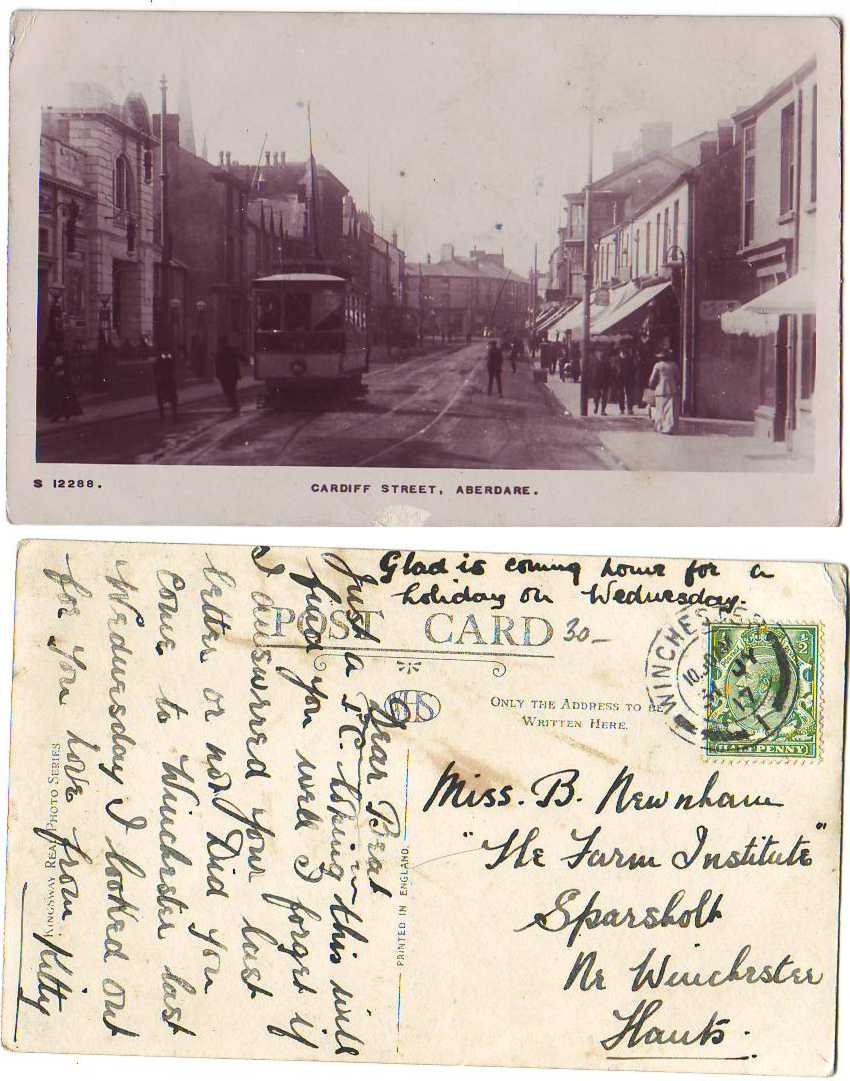 S 12288.
CARDIFF STREET, ABERDARE.
Glad is coming home for a
holiday on Wednesday.
POST CARD
30-
WINCHESTER
10.
31 JY
17
1
HALFPENNY
ONLY THE ADDRESS TO BE
WRITTEN HERE.
Miss. B. Newnham
"The Farm Institute"
Sparsholt
Nr Winchester
Hants.
Dear Beat
Just a P.C. hoping this will
find you well I forget if
I answered your last
letter or not Did you
come to Winchester last
Wednesday I looked out
for you love from Kitty
KINGSWAY REAL PHOTO SERIES
PRINTED IN ENGLAND.